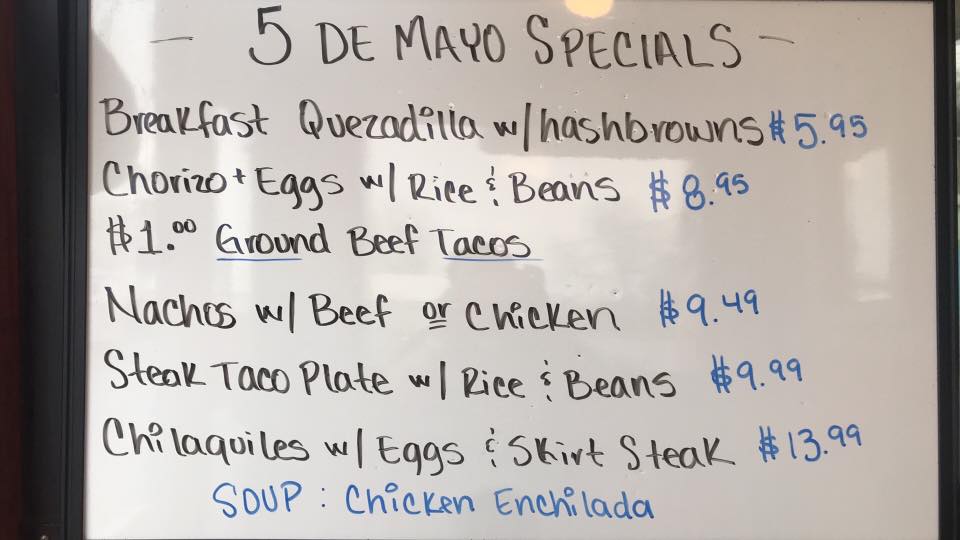 — 5 DE MAYO SPECIALS —
Breakfast Quezadilla w/hashbrowns $5.95
Chorizo + Eggs w/ Rice & Beans $8.95
$1.00 Ground Beef Tacos
Nachos w/ Beef or Chicken $9.49
Steak Taco Plate w/ Rice & Beans $9.99
Chilaquiles w/ Eggs & Skirt Steak $13.99
SOUP : Chicken Enchilada